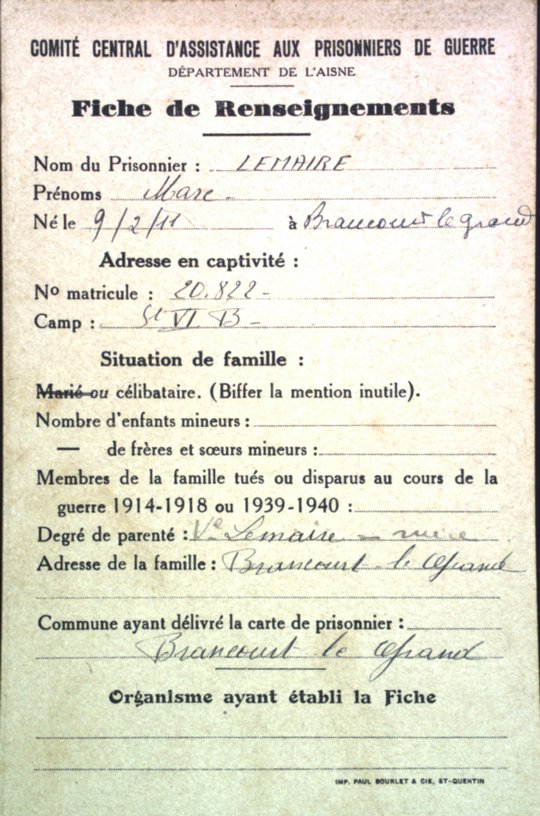 COMITÉ CENTRAL D'ASSISTANCE AUX PRISONNIERS DE GUERRE
DÉPARTEMENT DE L'AISNE
Fiche de Renseignements
Nom du Prisonnier : LEMAIRE
Prénoms Marc
Né le 9/2/11 à Brancourt le grand
Adresse en captivité :
No matricule : 20.822
Camp : St VI B
Situation de famille :
Marié ou célibataire. (Biffer la mention inutile).
Nombre d'enfants mineurs :
— de frères et sœurs mineurs :
Membres de la famille tués ou disparus au cours de la
guerre 1914-1918 ou 1939-1940 :
Degré de parenté : Ve Lemaire = mère
Adresse de la famille : Brancourt-le Grand
Commune ayant délivré la carte de prisonnier :
Brancourt le Grand
Organisme ayant établi la Fiche
IMP. PAUL BOURLET & CIE, ST-QUENTIN